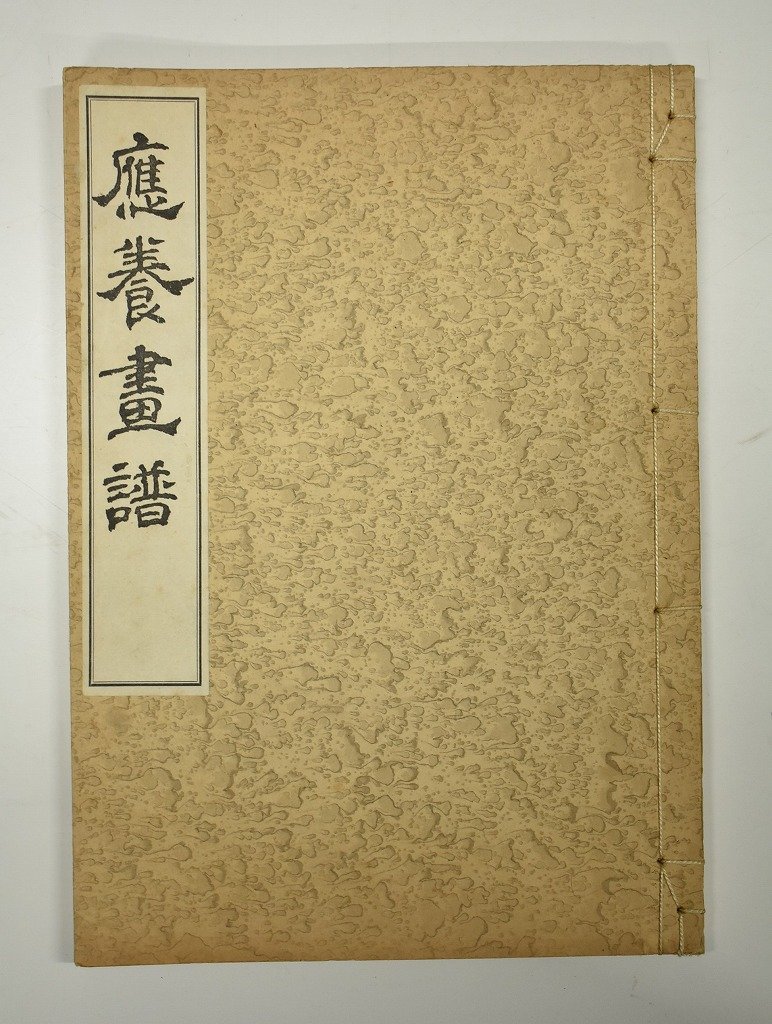 應養畫譜